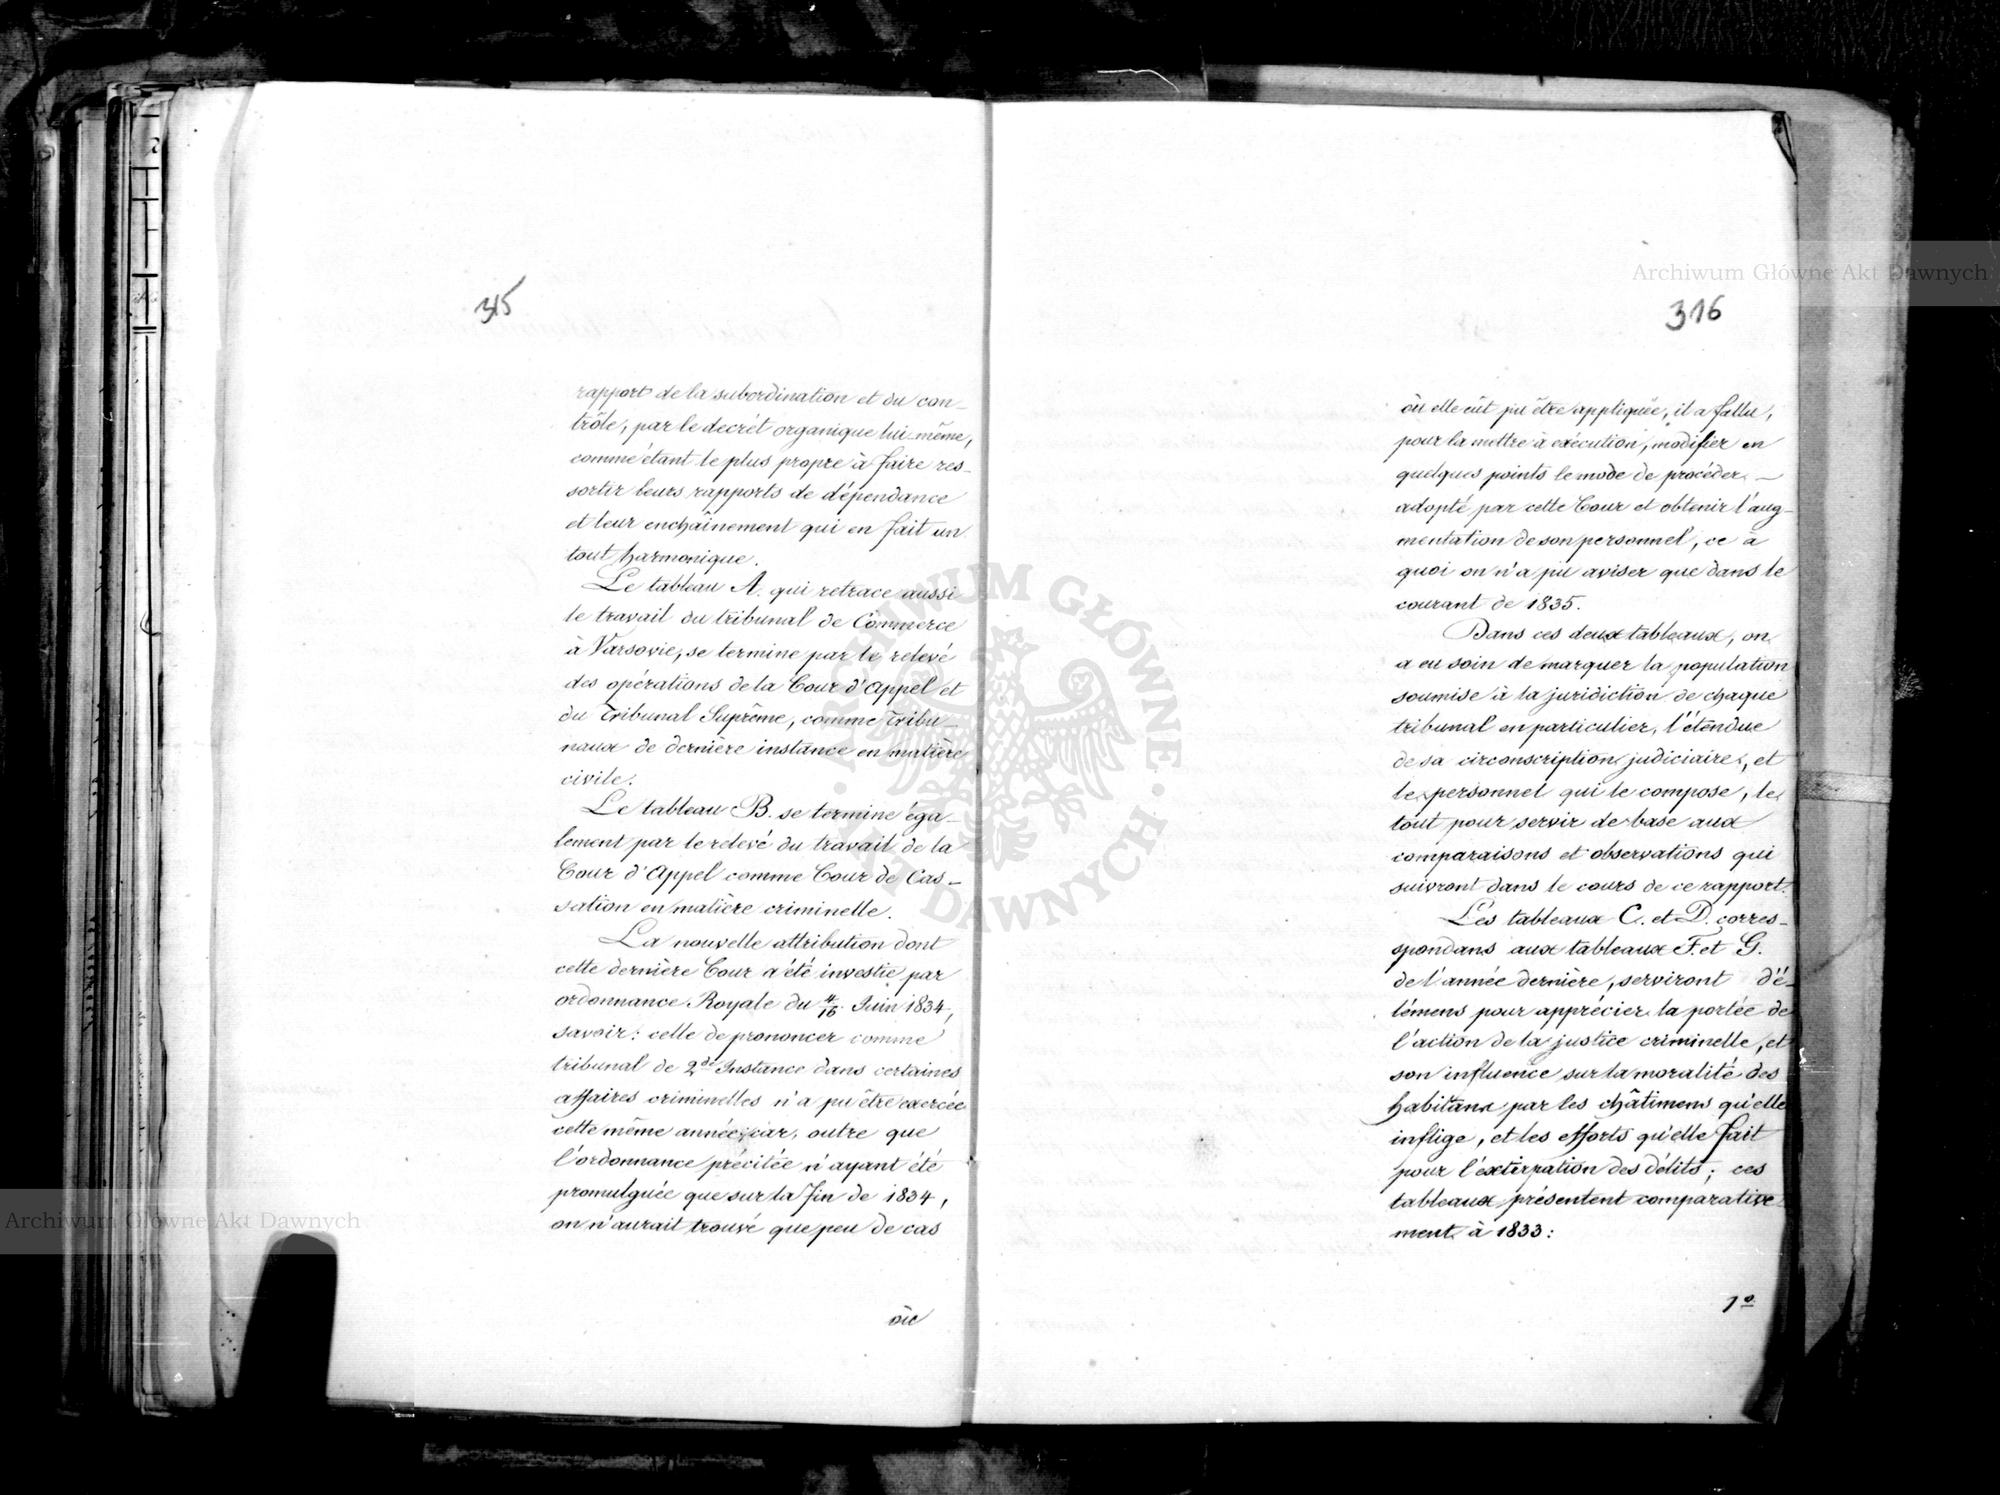 315
rapport de la subordination et du con-
trôle, par le decrét organique lui-même,
comme étant le plus propre à faire res-
sortir leurs rapports de dépendance
et leur enchaînement qui en fait un
tout harmonique.
Le tableau A. qui retrace aussi
le travail du tribunal de Commerce
à Varsovie, se termine par le relevé
des opérations de la Cour d'Appel et
du Tribunal Suprême, comme Tribu-
naux de dernière instance en matière
civile.
Le tableau B. se termine éga-
lement par le relevé du travail de la
Cour d'Appel comme Cour de Cas-
sation en matière criminelle.
La nouvelle attribution dont
cette dernière Cour a été investie par
ordonnance Royale du 4/16 Juin 1834,
savoir: celle de prononcer comme
tribunal de 2de Instance dans certaines
affaires criminelles n'a pu être exercée
cette même année, car, outre que
l'ordonnance précitée n'ayant été
promulguée que sur la fin de 1834,
on n'aurait trouvé que peu de cas
où
316
où elle eût pu être appliquée, il a fallu,
pour la mettre à exécution, modifier en
quelques points le mode de procéder -
adopté par cette Cour et obtenir l'aug-
mentation de son personnel, ce à
quoi on n'a pu aviser que dans le
courant de 1835.
Dans ces deux tableaux, on
a eu soin de marquer la population
soumise à la juridiction de chaque
tribunal en particulier, l'étendue
de sa circonscription judiciaire, et
le personnel qui le compose, le
tout pour servir de base aux
comparaisons et observations qui
suivront dans le cours de ce rapport.
Les tableaux C. et D. corres-
pondans aux tableaux F. et G.
de l'année dernière, serviront d'é-
lémens pour apprécier la portée de
l'action de la justice criminelle, et
son influence sur la moralité des
habitans par les châtimens qu'elle
inflige, et les efforts qu'elle fait
pour l'extirpation des délits; ces
tableaux présentent comparative-
ment à 1833:
1º
Archiwum Główne Akt Dawnych
Archiwum Główne Akt Dawnych
ARCHIWUM GŁÓWNE · AKT DAWNYCH ·